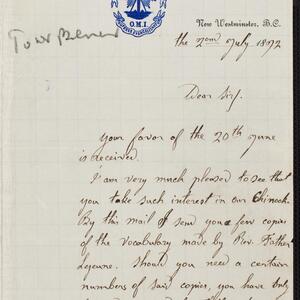 O.M.I.
New Westminster, B.C.
the 2nd July 1892
Dear Sir.
Your favor of the 20th June
is received.
I am very much pleased to see that
you take such interest in our Chinook.
By this mail I send you a few copies
of the vocabulary made by Rev. Father
Lejeune. Should you need a certain
numbers of said copies, you have only